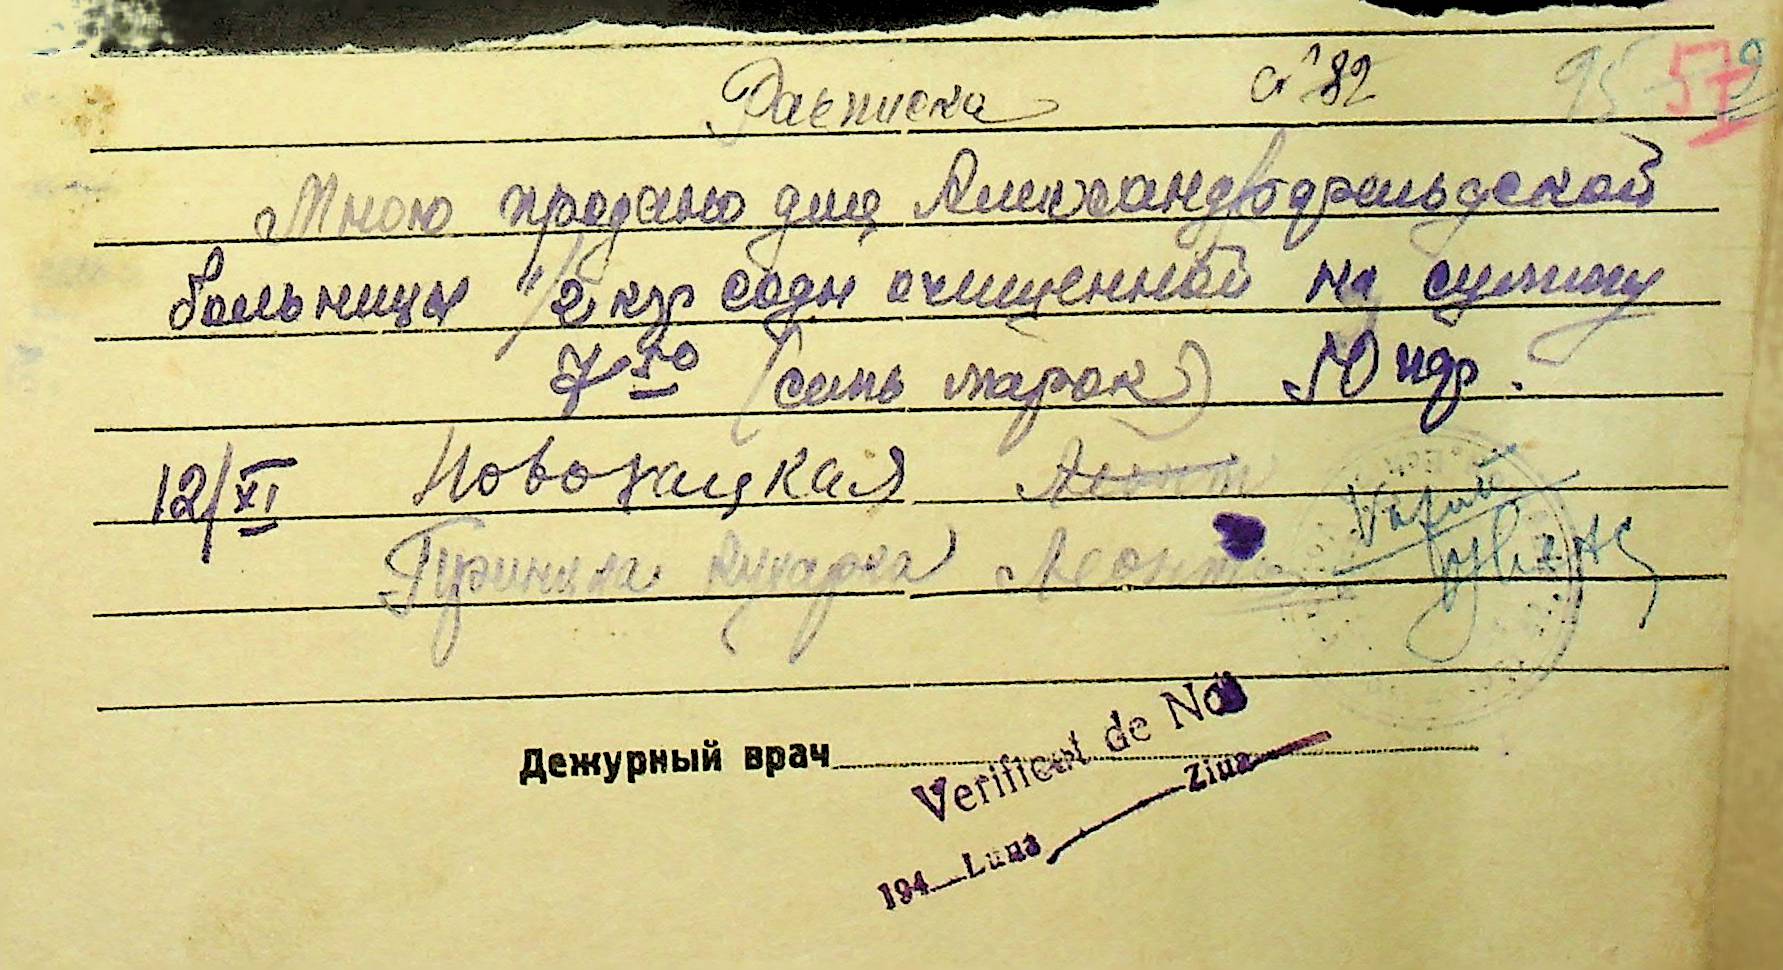 Расписка № 82 95 57
Мною продано для Александрфельдской
больницы 1/2 кгр соды очищенной на сумму
7 50 (семь марок) 50 пфр.
12/XI Новохацкая
кухарка Леонт
Дежурный врач
Verificat de Noi
194 Luna Ziua